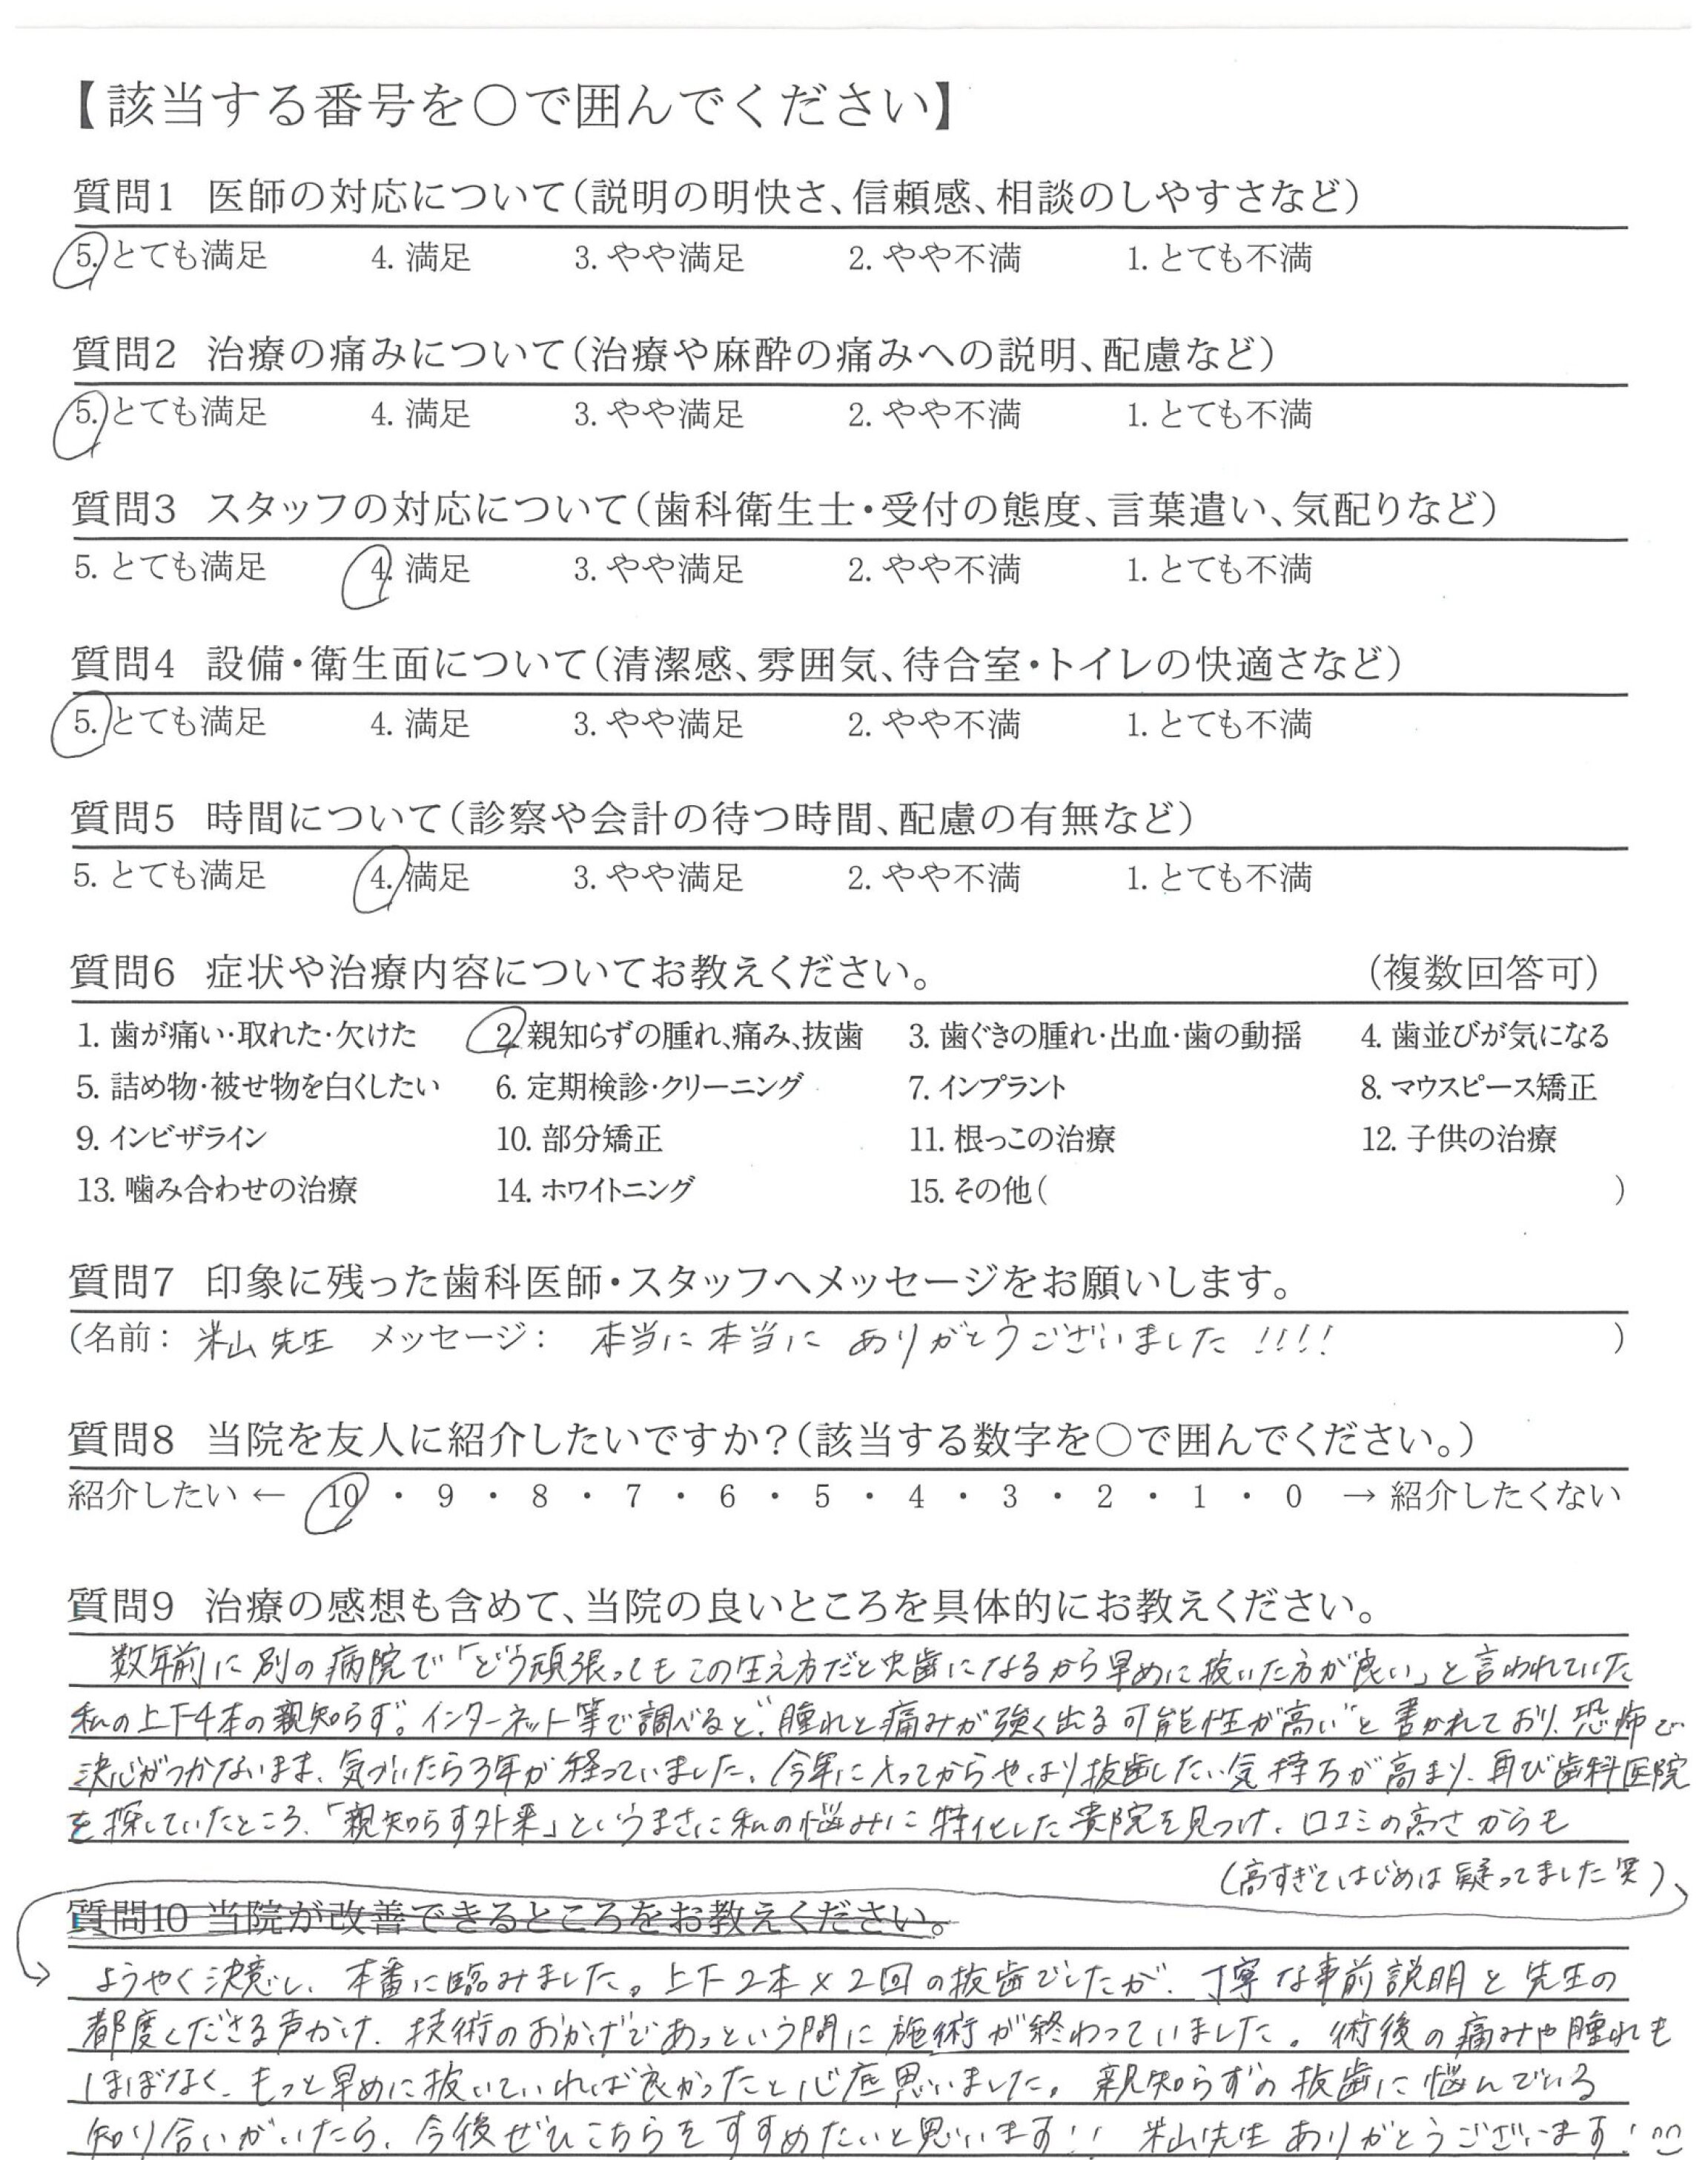 【該当する番号を○で囲んでください】
質問1 医師の対応について(説明の明快さ、信頼感、相談のしやすさなど)
5. とても満足 4. 満足 3. やや満足 2. やや不満 1. とても不満
質問2 治療の痛みについて(治療や麻酔の痛みへの説明、配慮など)
5. とても満足 4. 満足 3. やや満足 2. やや不満 1. とても不満
質問3 スタッフの対応について(歯科衛生士・受付の態度、言葉遣い、気配りなど)
5. とても満足 4. 満足 3. やや満足 2. やや不満 1. とても不満
質問4 設備・衛生面について(清潔感、雰囲気、待合室・トイレの快適さなど)
5. とても満足 4. 満足 3. やや満足 2. やや不満 1. とても不満
質問5 時間について(診察や会計の待つ時間、配慮の有無など)
5. とても満足 4. 満足 3. やや満足 2. やや不満 1. とても不満
質問6 症状や治療内容についてお教えください。 (複数回答可)
1. 歯が痛い・取れた・欠けた 2. 親知らずの腫れ、痛み、抜歯 3. 歯ぐきの腫れ・出血・歯の動揺 4. 歯並びが気になる
5. 詰め物・被せ物を白くしたい 6. 定期検診・クリーニング 7. インプラント 8. マウスピース矯正
9. インビザライン 10. 部分矯正 11. 根っこの治療 12. 子供の治療
13. 噛み合わせの治療 14. ホワイトニング 15. その他( )
質問7 印象に残った歯科医師・スタッフへメッセージをお願いします。
(名前: 米山先生 メッセージ: 本当に本当に ありがとうございました!!!! )
質問8 当院を友人に紹介したいですか?(該当する数字を○で囲んでください。)
紹介したい ← 10 ・ 9 ・ 8 ・ 7 ・ 6 ・ 5 ・ 4 ・ 3 ・ 2 ・ 1 ・ 0 → 紹介したくない
質問9 治療の感想も含めて、当院の良いところを具体的にお教えください。
数年前に別の病院で「どう頑張ってもこの生え方だと虫歯になるから早めに抜いた方が良い」と言われていた
私の上下4本の親知らず。インターネット等で調べると、"腫れと痛みが強く出る可能性が高い"と書かれており、恐怖で
決心がつかないまま、気づいたら3年が経っていました。今年に入ってからやはり抜歯したい気持ちが高まり、再び歯科医院
を探していたところ、「親知らず外来」というまさに私の悩みに特化した貴院を見つけ、口コミの高さからも
(高すぎてはじめは疑ってました笑)
質問10 当院が改善できるところをお教えください。
ようやく決意し、本番に臨みました。上下2本×2回の抜歯でしたが、丁寧な事前説明と先生の
都度くださる声かけ、技術のおかげであっという間に施術が終わっていました。術後の痛みや腫れも
ほぼなく、もっと早めに抜いていれば良かったと心底思いました。親知らずの抜歯に悩んでいる
知り合いがいたら、今後ぜひこちらをすすめたいと思います!! 米山先生ありがとうございます!